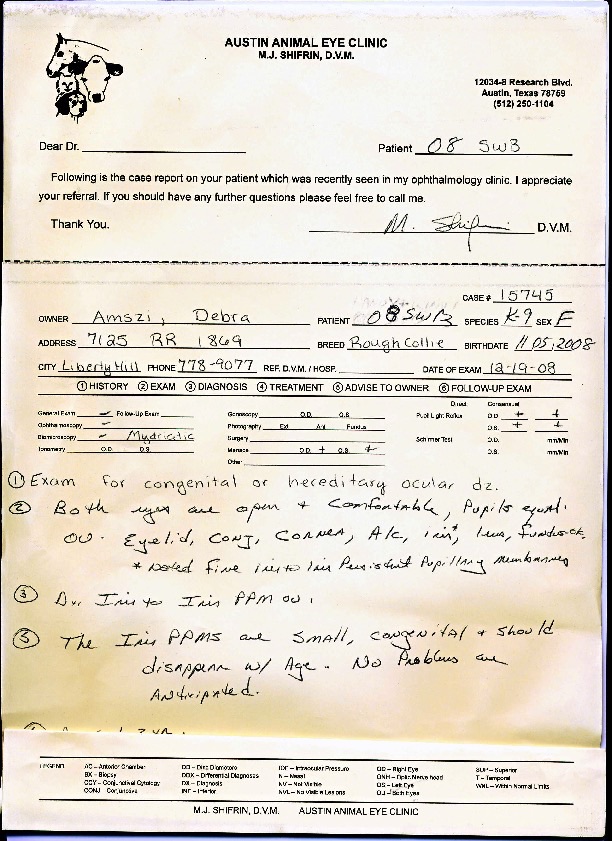 AUSTIN ANIMAL EYE CLINIC
M.J. SHIFRIN, D.V.M.
12034-B Research Blvd.
Austin, Texas 78759
(512) 250-1104
Dear Dr. Patient 08 SWB
Following is the case report on your patient which was recently seen in my ophthalmology clinic. I appreciate
your referral. If you should have any further questions please feel free to call me.
Thank You. M. Shifrin D.V.M.
CASE # 15745
OWNER Amszi, Debra PATIENT 08 SWB SPECIES K-9 SEX F
ADDRESS 7125 RR 1869 BREED Rough Collie BIRTHDATE 11 05, 2008
CITY Liberty Hill PHONE 778-9077 REF. D.V.M. / HOSP. DATE OF EXAM 12-19-08
① HISTORY ② EXAM ③ DIAGNOSIS ④ TREATMENT ⑤ ADVISE TO OWNER ⑥ FOLLOW-UP EXAM
Direct Consensual
General Exam Follow-Up Exam Gonioscopy O.D. O.S. Pupil Light Reflex O.D. + +
Ophthalmoscopy Photography Ext Ant Fundus O.S. + +
Biomicroscopy Mydriatic Surgery Schirmer Test O.D. mm/Min
Tonometry O.D. O.S. Menace O.D. + O.S. + O.S. mm/Min
Other
① Exam for congenital or hereditary ocular dz.
② Both eyes are open + comfortable, Pupils equal.
OU. Eyelid, Conj, Cornea, A/C, iris*, lens, fundus ok.
* Noted fine iris to iris Persistent Pupillary Membranes
③ Dx. Iris to Iris PPM OU.
⑤ The Iris PPMs are small, congenital + should
disappear w/ Age. No Problems are
Anticipated.
LEGEND AC – Anterior Chamber DD – Disc Diameters IOP – Intraocular Pressure OD – Right Eye SUP – Superior
BX – Biopsy DDX – Differential Diagnoses N – Nasal ONH – Optic Nerve head T – Temporal
CCY – Conjunctival Cytology DX – Diagnosis NV – Not Visible OS – Left Eye WNL – Within Normal Limits
CONJ – Conjunctiva INF – Inferior NVL – No Visible Lesions OU – Both Eyes
M.J. SHIFRIN, D.V.M. AUSTIN ANIMAL EYE CLINIC